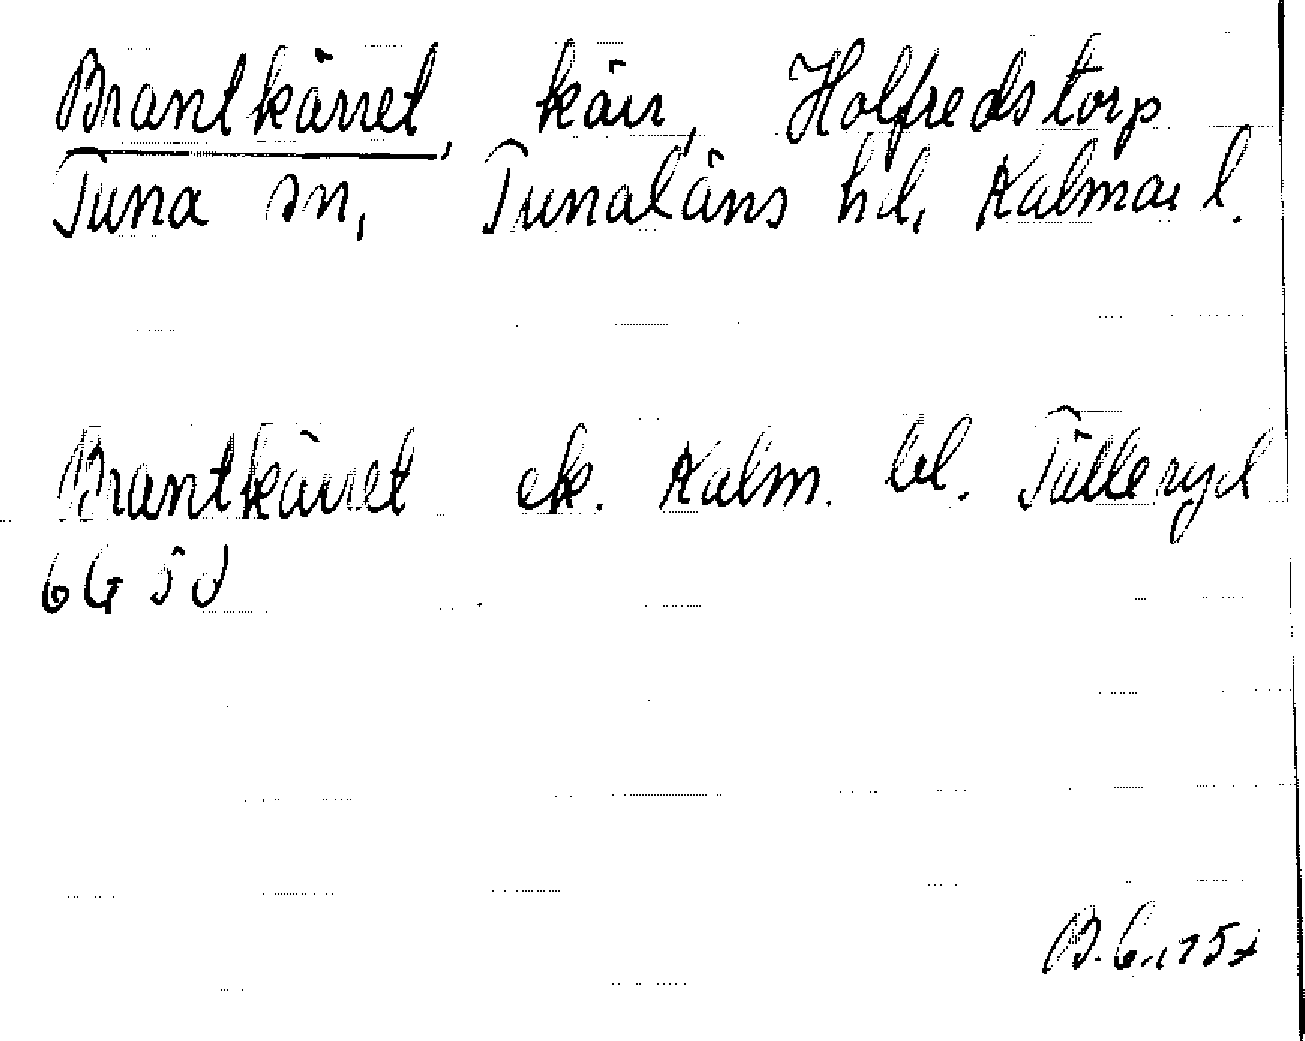 Brantkärret, kärr, Holfredstorp
Tuna sn, Tunaläns hd, Kalmar l.
Brantkärret ek. Kalm. bl. Tälleryd
6G 5d